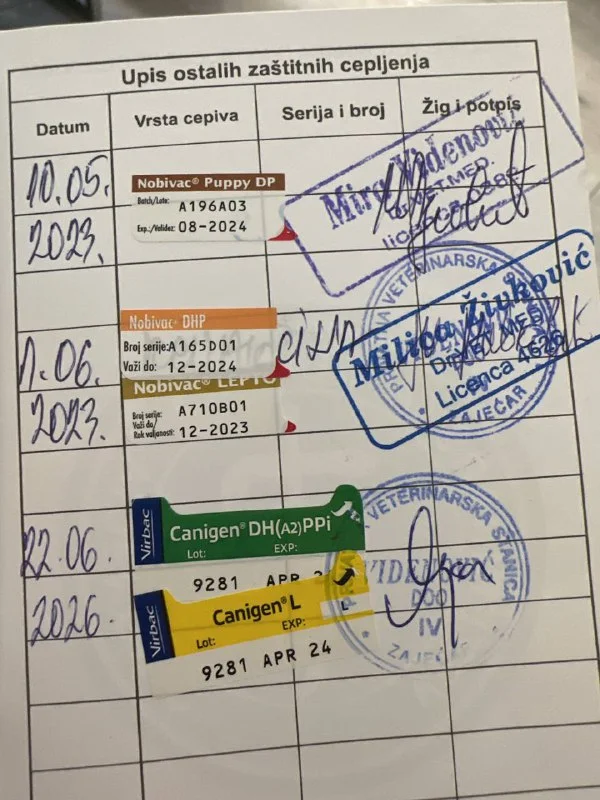 Upis ostalih zaštitnih cepljenja
Datum
Vrsta cepiva
Serija i broj
Žig i potpis
10.05.
2023.
Nobivac® Puppy DP
Batch/Lote: A196A03
Exp./Validez: 08-2024
Mira Videnović
VET.MED.
licenca
Nobivac® DHP
Broj serije: A165D01
Važi do: 12-2024
11.06.
2023.
Nobivac LEPTO
Broj serije: A710B01
Važi do/
Rok valjanosti: 12-2023
VETERINARSKA
Milica Živković
Licenca 4626
ZAJEČAR
22.06.
2026.
Virbac
Canigen® DH(A2)PPi
Lot: EXP:
9281 APR
Virbac
Canigen® L
Lot: EXP:
9281 APR 24
VETERINARSKA STANICA
VIDENOVIĆ
DOO
IV
ZAJEČAR